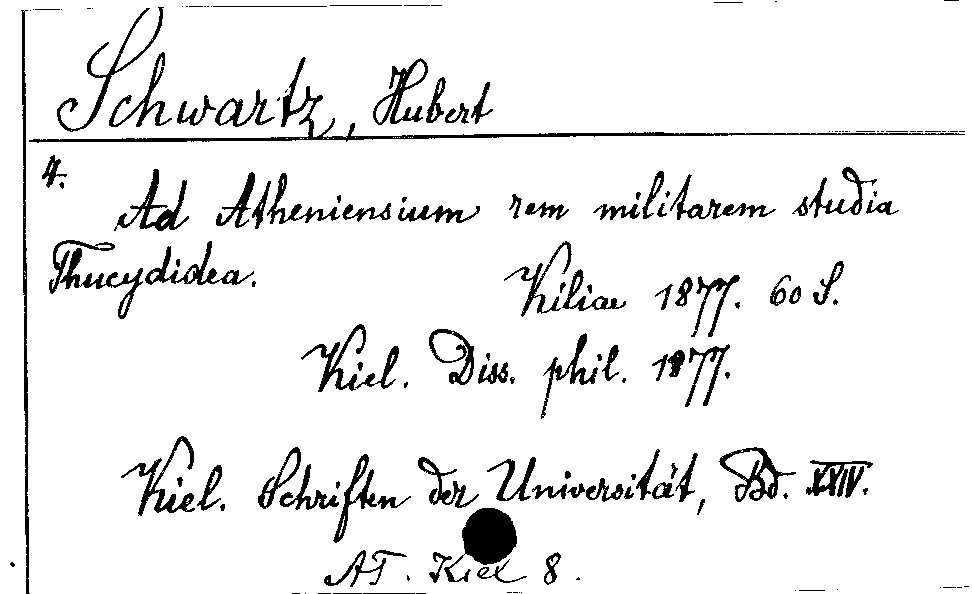 Schwartz, Hubert
4.
Ad Atheniensium rem militarem studia
Thucydidea.
Kiliae 1877. 60 S.
Kiel. Diss. phil. 1877.
Kiel. Schriften der Universität, Bd. XXIV.
AT. Kiel 8.